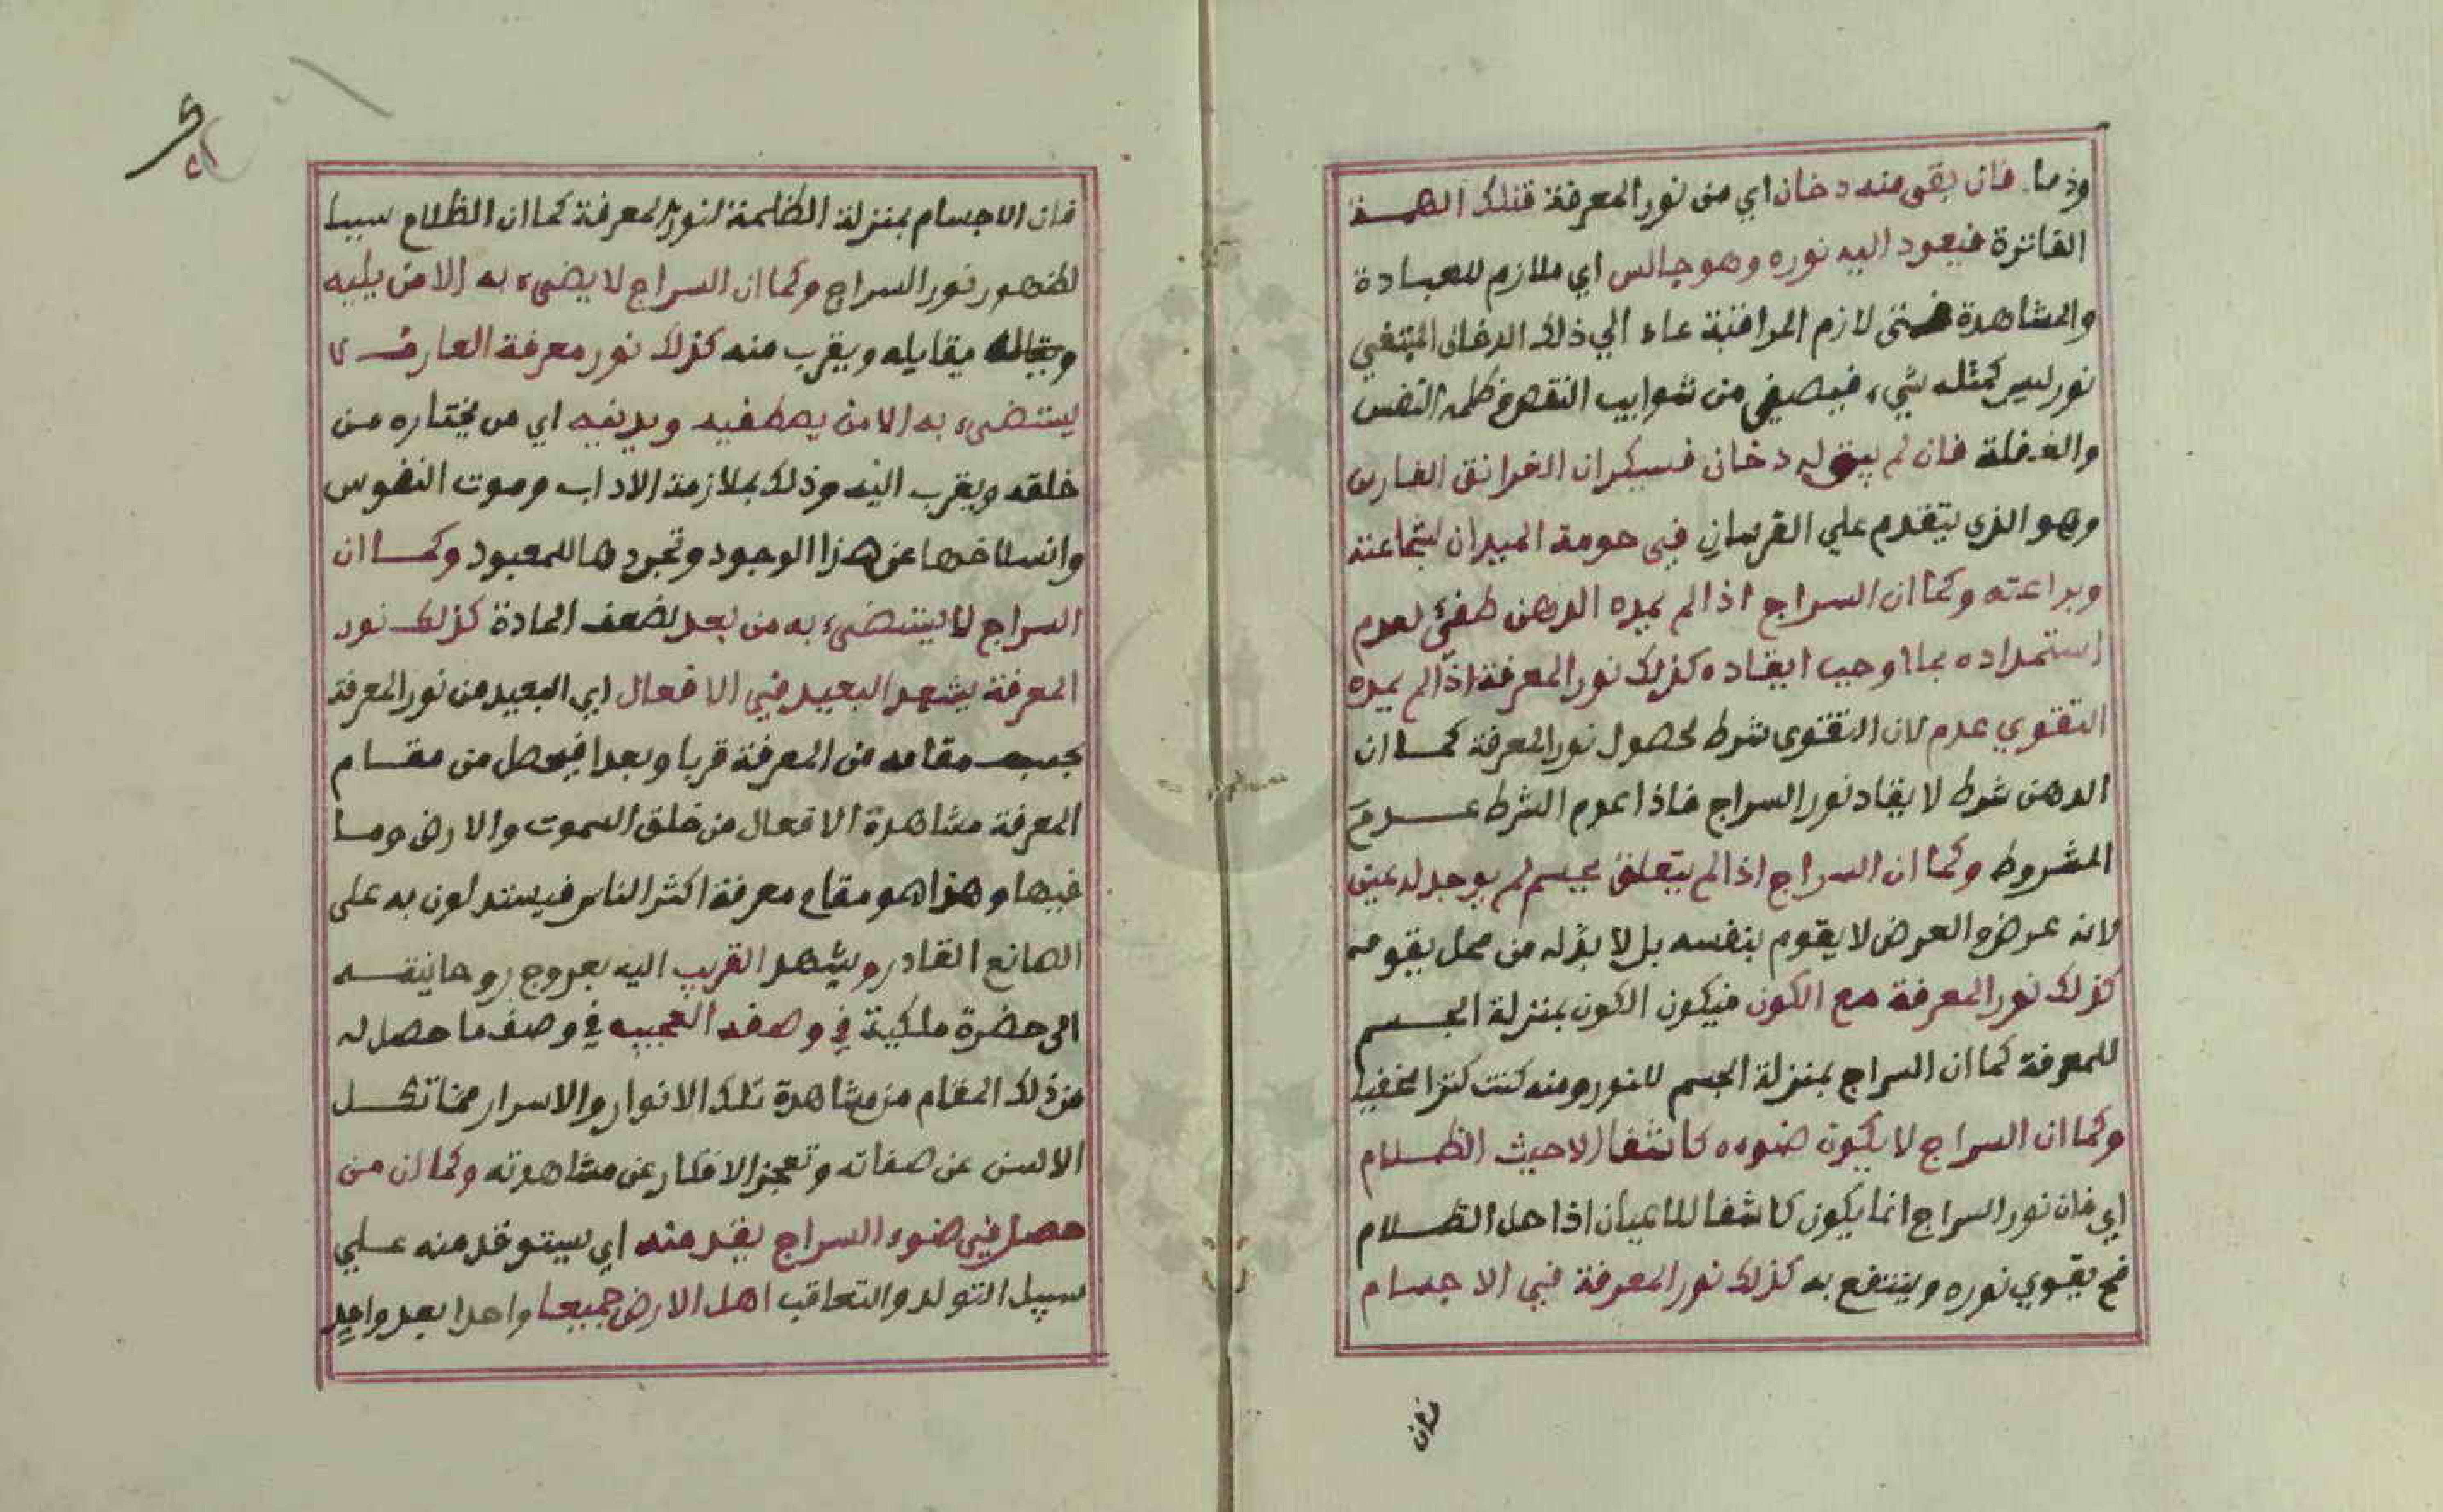 وذما فان بقي منه دخان اي من نور المعرفة فتلك الهمة
الفاترة فيعود اليه نوره وهو جالس اي ملازم للعبادة
والمشاهدة فمتى لازم المراقبة عاد الي ذلك الدخان
نور ليس كمثله شيء فيصفي من شوايب النقص وظلمة النفس
والغفلة فان لم يبق له دخان
وهو الذي يتقدم علي الفرسان في حومة الميدان لشجاعته
وبراعته وكما ان السراج اذا لم يمده الدهن طفئ لعدم
استمداده بما اوجب ايقاده كذلك نور المعرفة اذا لم يمده
التقوي عدم لان التقوى شرط لحصول نور المعرفة كما ان
الدهن شرط لايقاد نور السراج فاذا عدم الشرط عدم
المشروط وكما ان السراج اذا لم يتعلق بجسم لم يوجد له عين
لانه عرض والعرض لا يقوم بنفسه بل لا بد له من محل يقومه
كذلك نور المعرفة مع الكون فيكون الكون بمنزلة الجسم
للمعرفة كما ان السراج بمنزلة الجسم للنور ومنه كنت كنزا مخفيا
وكما ان السراج لا يكون ضوءه كاشفا الا حيث الظلام
اي فان نور السراج انما يكون كاشفا للاعيان اذا حل الظلام
فح يقوي نوره وينتفع به كذلك نور المعرفة في الاجسام
فان
فان الاجسام بمنزلة الظلمة لنور المعرفة كما ان الظلام سببا
لظهور نور السراج وكما ان السراج لا يضيء به الا من يليه
يقابله ويقرب منه كذلك نور معرفة العارف لا
يستضيء به الا من يصطفيه ويدنيه اي من يختاره من
خلقه ويقرب اليه وذلك بملازمة الاداب وموت النفوس
وانسلاخها عن هذا الوجود وتجردها للمعبود وكما ان
السراج لا يستضيء به من بعد لضعف المادة كذلك نور
المعرفة يشهد البعيد في الافعال اي البعيد من نور المعرفة
بحسب مقامه من المعرفة قربا وبعدا فيحصل من مقام
المعرفة مشاهدة الافعال من خلق السموت والارض وما
فيها وهذا هو مقام معرفة اكثر الناس فيستدلون به على
الصانع القادر ويشهد القريب اليه بعروج روحانيته
الى حضرة ملكية في وصفه العجيب في وصف ما حصل له
من ذلك المقام من مشاهدة تلك الانوار والاسرار مما تكل
الالسن عن صفاته وتعجز الافكار عن مشاهدته وكما ان من
حصل في ضوء السراج يقد منه اي يستوقد منه علي
سبيل التولد والتعاقب اهل الارض جميعا واحدا بعد واحد